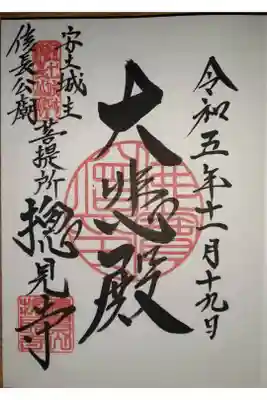 令和五年十一月十九日
大悲殿
安土城主
信長公廟菩提所
摠見寺